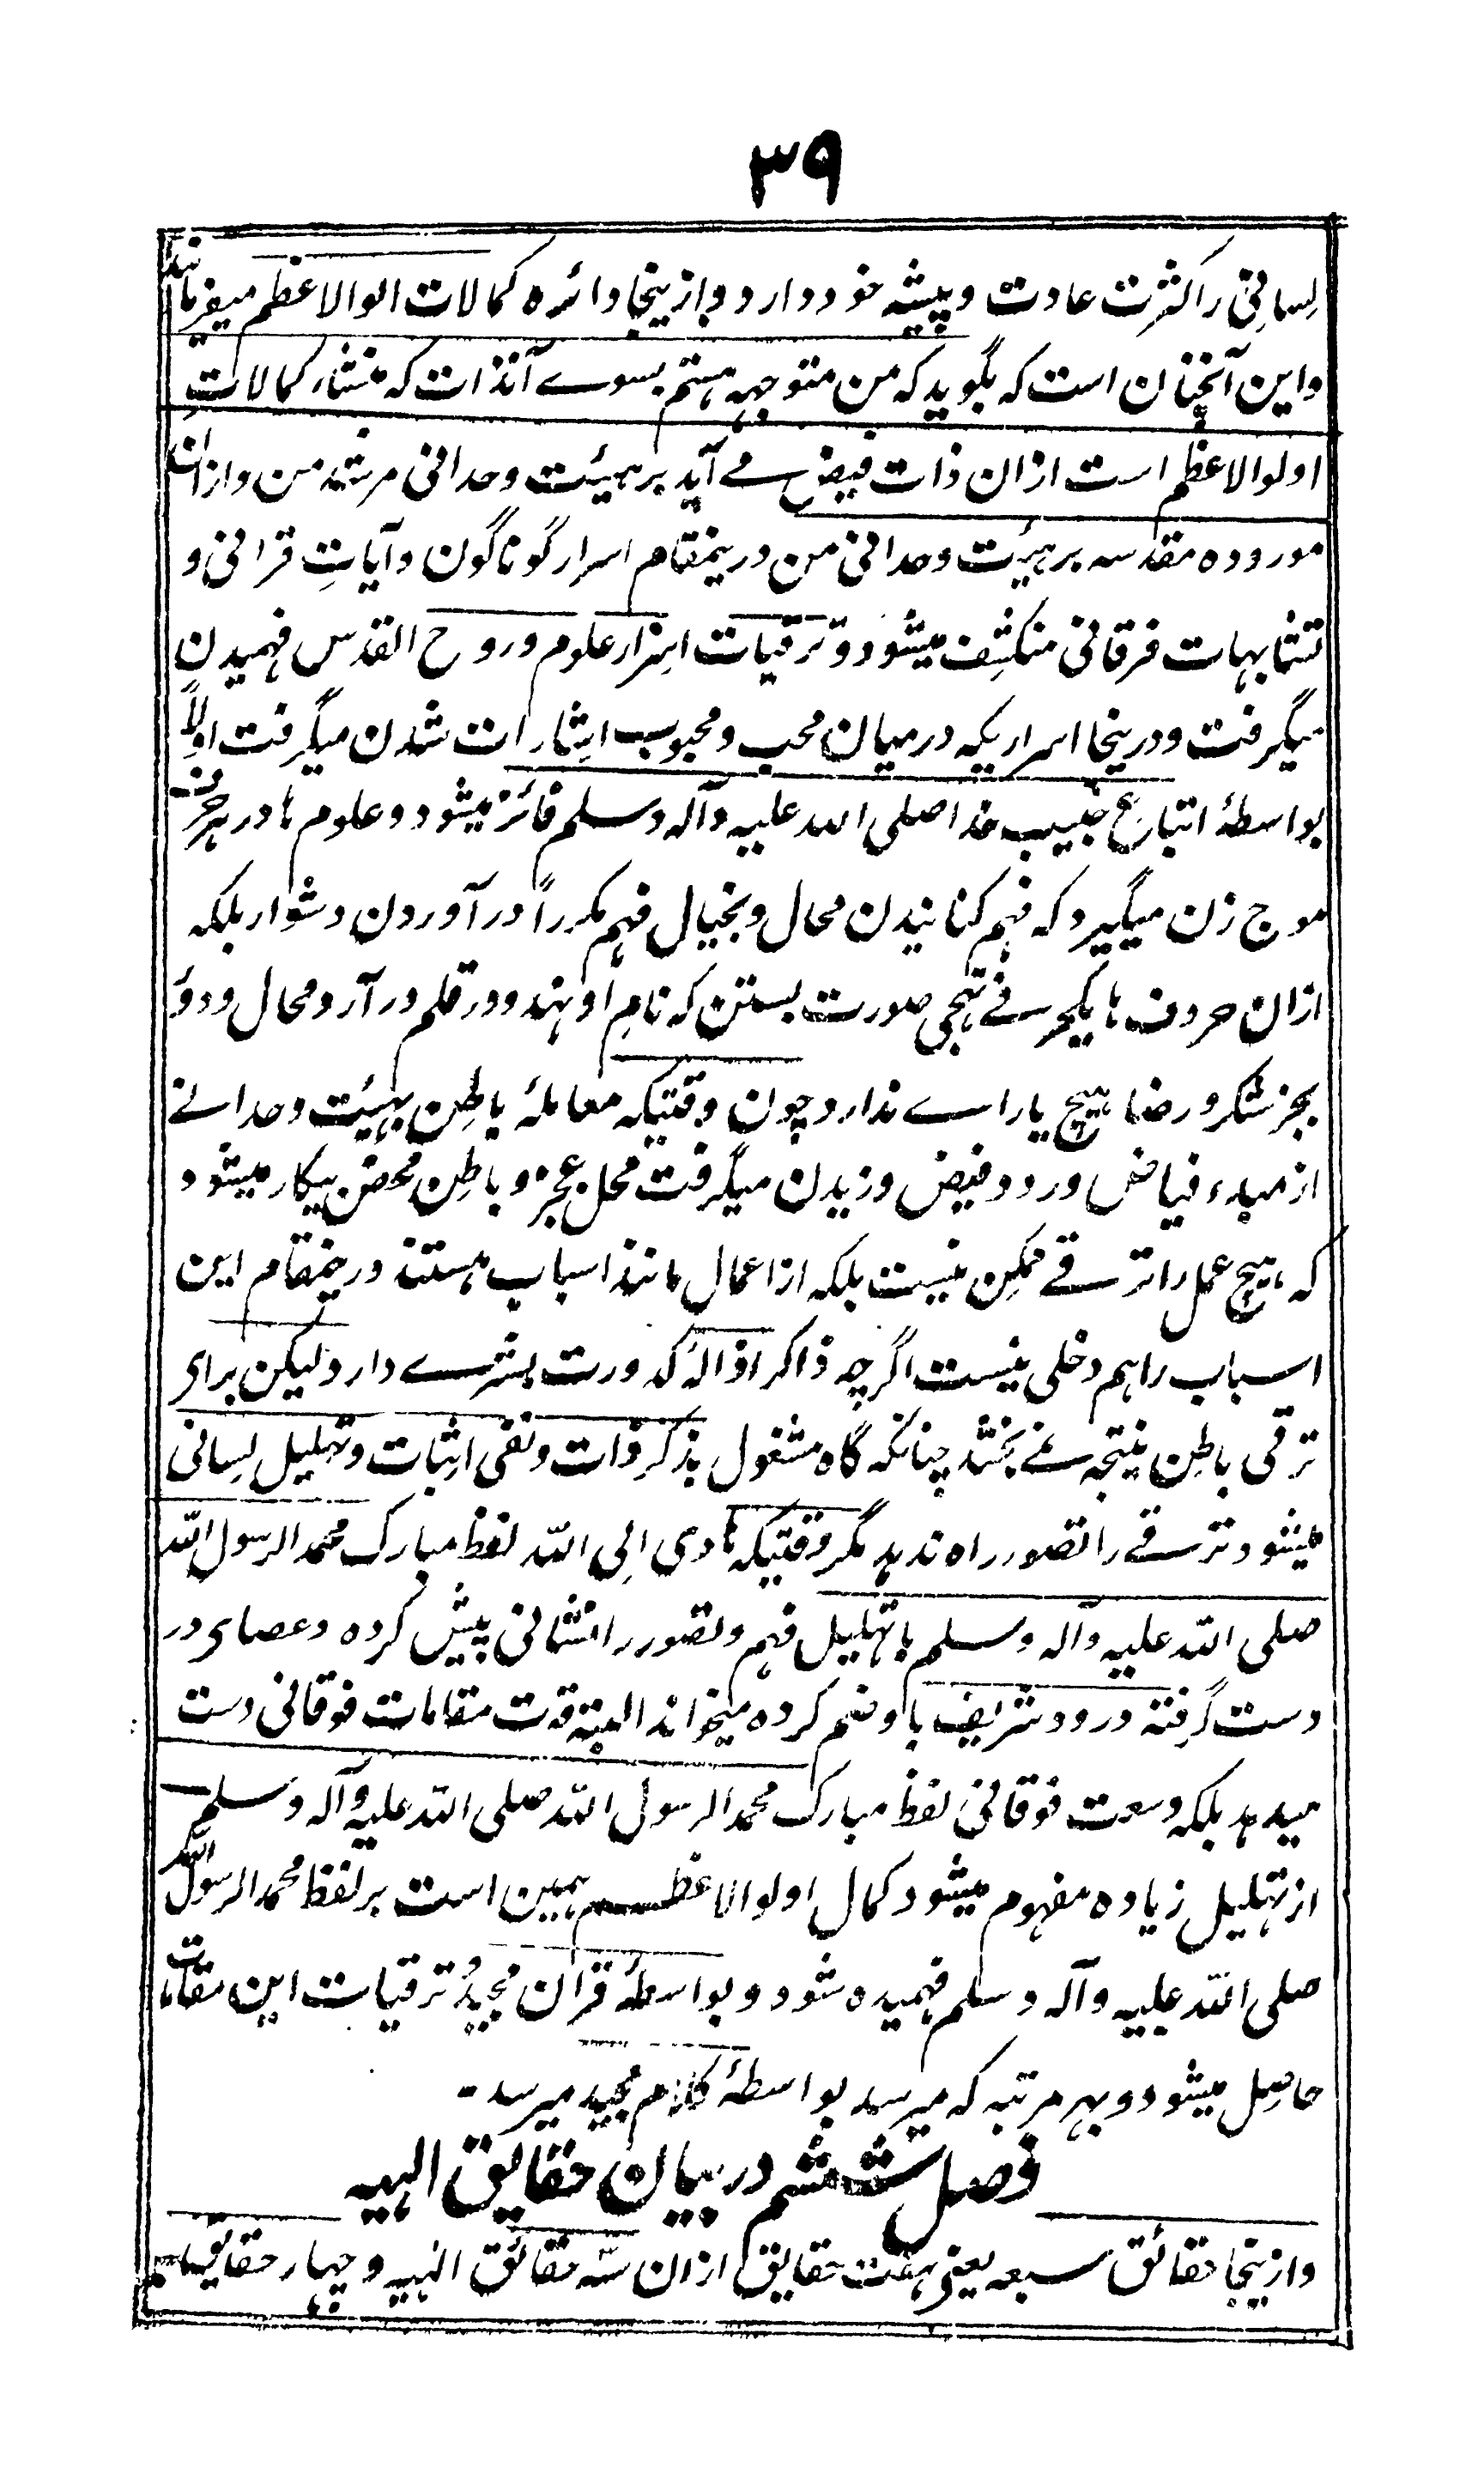 ۳۹
لسانی را کثرت عادت و پیشه خود دارد و ازینجا دائره کمالات الوالاعظم میفرمایند
و این آنچنان است که بگوید که من متوجهه هستم بسوے آنذات که منشاء کمالاتِ
اولوالاعظم است ازان ذات فیض مے آید بر هیئت وحدانی مرشد من و ازان
موروده مقدسه بر هیئت وحدانی من درینمقام اسرار گوناگون و آیاتِ قرانی و
تشابهات فرقانی منکشف میشود و ترقیات اسرار علوم و روح القدس فهمیدن
میگرفت و درینجا اسراریکه درمیان محب و محبوب اشارات شدن میگرفت اولاً
بواسطۂ اتباع حبیب خدا صلی الله علیه وآله وسلم فائز میشود و علوم ها در هر حرف
موج زن میگیرد که فهم کنانیدن محال و بخیال فهم مکرراً در آوردن دشوار بلکه
ازان حروف ها یکحرفے تهجی صورت بستن که نامِ او بند و در قلم در آرد محال و دؤ
بجز شکر و رضا هیچ یاراے ندارد چون وقتیکه معاملۂ باطن بهیئت وحدانے
از مبدء فیاض ورود فیض وزیدن میگرفت محل عجز و باطن محض بیکار میشود
که هیچ عمل را ترقے ممکن نیست بلکه از اعمال مانند اسباب هستند درینمقام این
اسباب را هم دخلی نیست اگرچه ذاکر ازالۂ کدورت بشرے دارد لیکن برای
ترقی باطن نتیجه نمے بخشد چنانکه گاه مشغول بذکر ذات و نفی اثبات و تهلیل لسانی
میشود ترقے را تصور راه ندهد مگر وقتیکه هادی الی الله لفظ مبارک محمد الرسول الله
صلی الله علیه وآله وسلم با تهلیل فهم و تصور را نشانی پیش کرده و عصای در
دست گرفته درود شریف باو ضم کرده میخواند البته قوت مقامات فوقانی دست
میدهد بلکه وسعت فوقانی لفظ مبارک محمد الرسول الله صلی الله علیه وآله وسلم
از تهلیل زیاده مفهوم میشود کمال اولوالاعظم همین است بر لفظ محمد الرسول الله
صلی الله علیه وآله وسلم فهمیده شود و بواسطۂ قران مجید ترقیات این مقامات
حاصل میشود و بهر مرتبه که میرسد بواسطۂ کلام مجید میرسد -
فصل ششم در بیان حقایق الهیه
و ازینجا حقائق سبعه یعنی هفت حقایق ازان سه حقائق الهیه و چهار حقایق